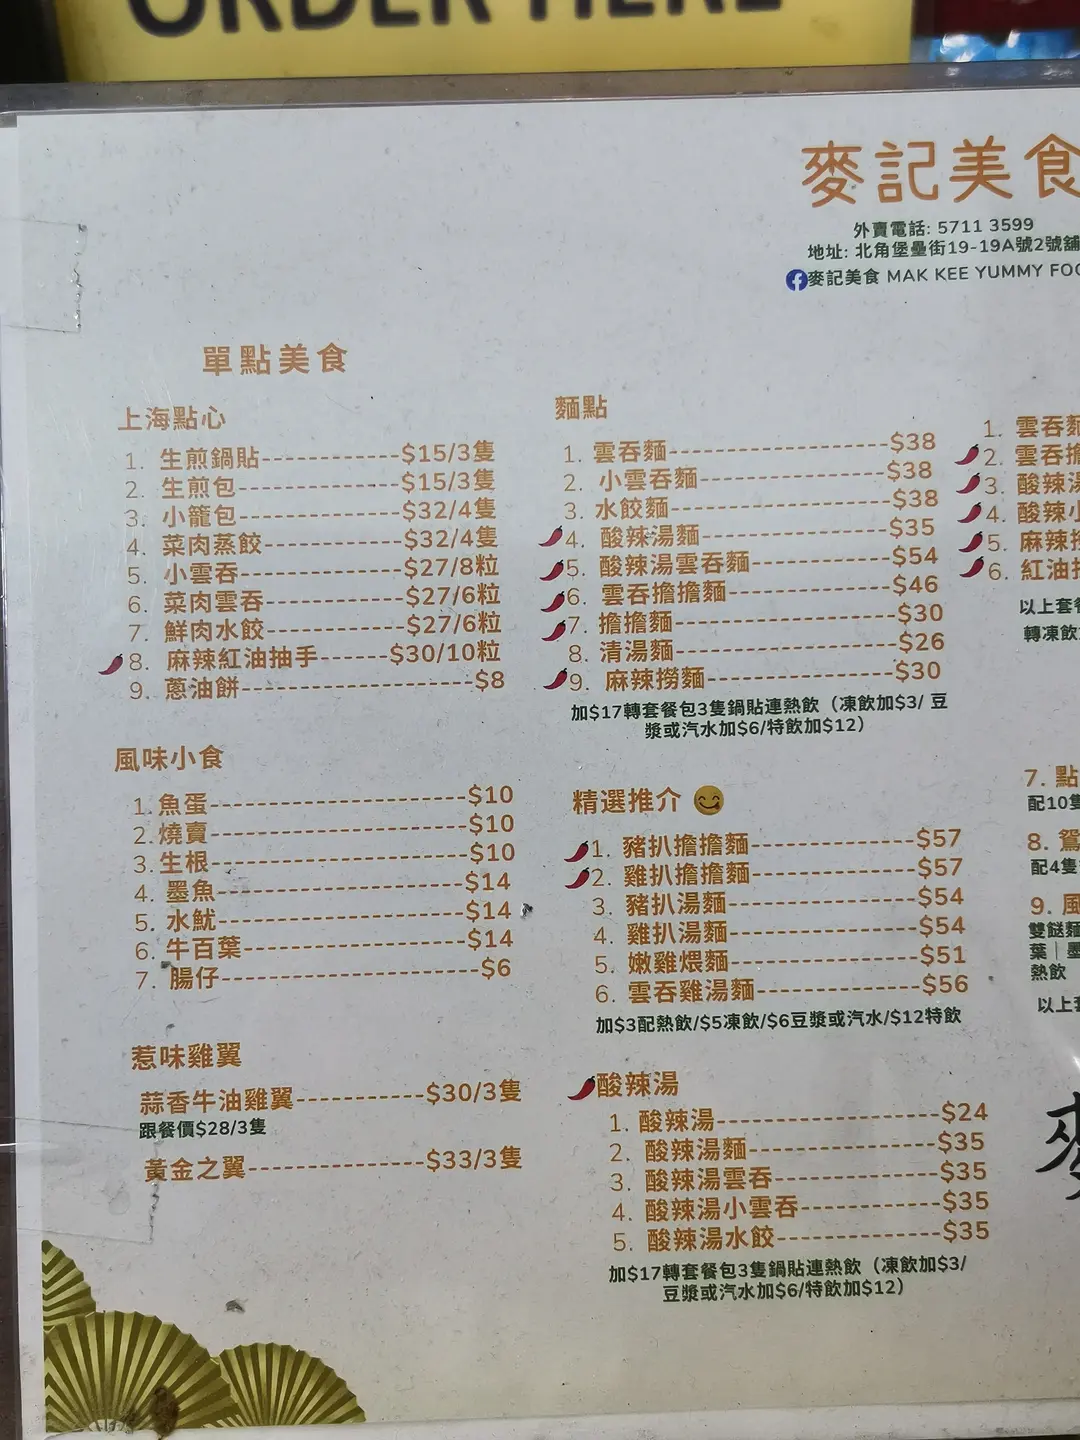 ORDER HERE
麥記美食
外賣電話: 5711 3599
地址: 北角堡壘街19-19A號2號舖
麥記美食 MAK KEE YUMMY
單點美食
上海點心
1. 生煎鍋貼------------$15/3隻
2. 生煎包--------------$15/3隻
3. 小籠包--------------$32/4隻
4. 菜肉蒸餃------------$32/4隻
5. 小雲吞--------------$27/8粒
6. 菜肉雲吞------------$27/6粒
7. 鮮肉水餃------------$27/6粒
8. 麻辣紅油抽手------$30/10粒
9. 蔥油餅--------------------$8
風味小食
1. 魚蛋----------------------$10
2. 燒賣----------------------$10
3. 生根----------------------$10
4. 墨魚---------------------$14
5. 水魷---------------------$14
6. 牛百葉-------------------$14
7. 腸仔----------------------$6
惹味雞翼
蒜香牛油雞翼-----------$30/3隻
跟餐價$28/3隻
黃金之翼---------------$33/3隻
麵點
1. 雲吞麵-------------------$38
2. 小雲吞麵----------------$38
3. 水餃麵-------------------$38
4. 酸辣湯麵----------------$35
5. 酸辣湯雲吞麵------------$54
6. 雲吞擔擔麵--------------$46
7. 擔擔麵-------------------$30
8. 清湯麵-------------------$26
9. 麻辣撈麵----------------$30
加$17轉套餐包3隻鍋貼連熱飲（凍飲加$3/ 豆
漿或汽水加$6/特飲加$12）
精選推介
1. 豬扒擔擔麵--------------$57
2. 雞扒擔擔麵--------------$57
3. 豬扒湯麵----------------$54
4. 雞扒湯麵----------------$54
5. 嫩雞煨麵----------------$51
6. 雲吞雞湯麵--------------$56
加$3配熱飲/$5凍飲/$6豆漿或汽水/$12特飲
酸辣湯
1. 酸辣湯-------------------$24
2. 酸辣湯麵----------------$35
3. 酸辣湯雲吞--------------$35
4. 酸辣湯小雲吞------------$35
5. 酸辣湯水餃--------------$35
加$17轉套餐包3隻鍋貼連熱飲（凍飲加$3/
豆漿或汽水加$6/特飲加$12）
1. 雲吞麵
2. 雲吞擔
3. 酸辣湯
4. 酸辣小
5. 麻辣
6. 紅油
以上套
轉凍飲
7. 點
配10隻
8. 鴛
配4隻
9. 風
雙餸麵
葉｜墨
熱飲
以上
麥